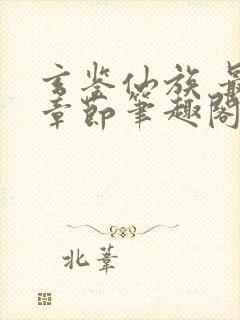 玄鉴仙族 最
章節筆趣閣
北葦